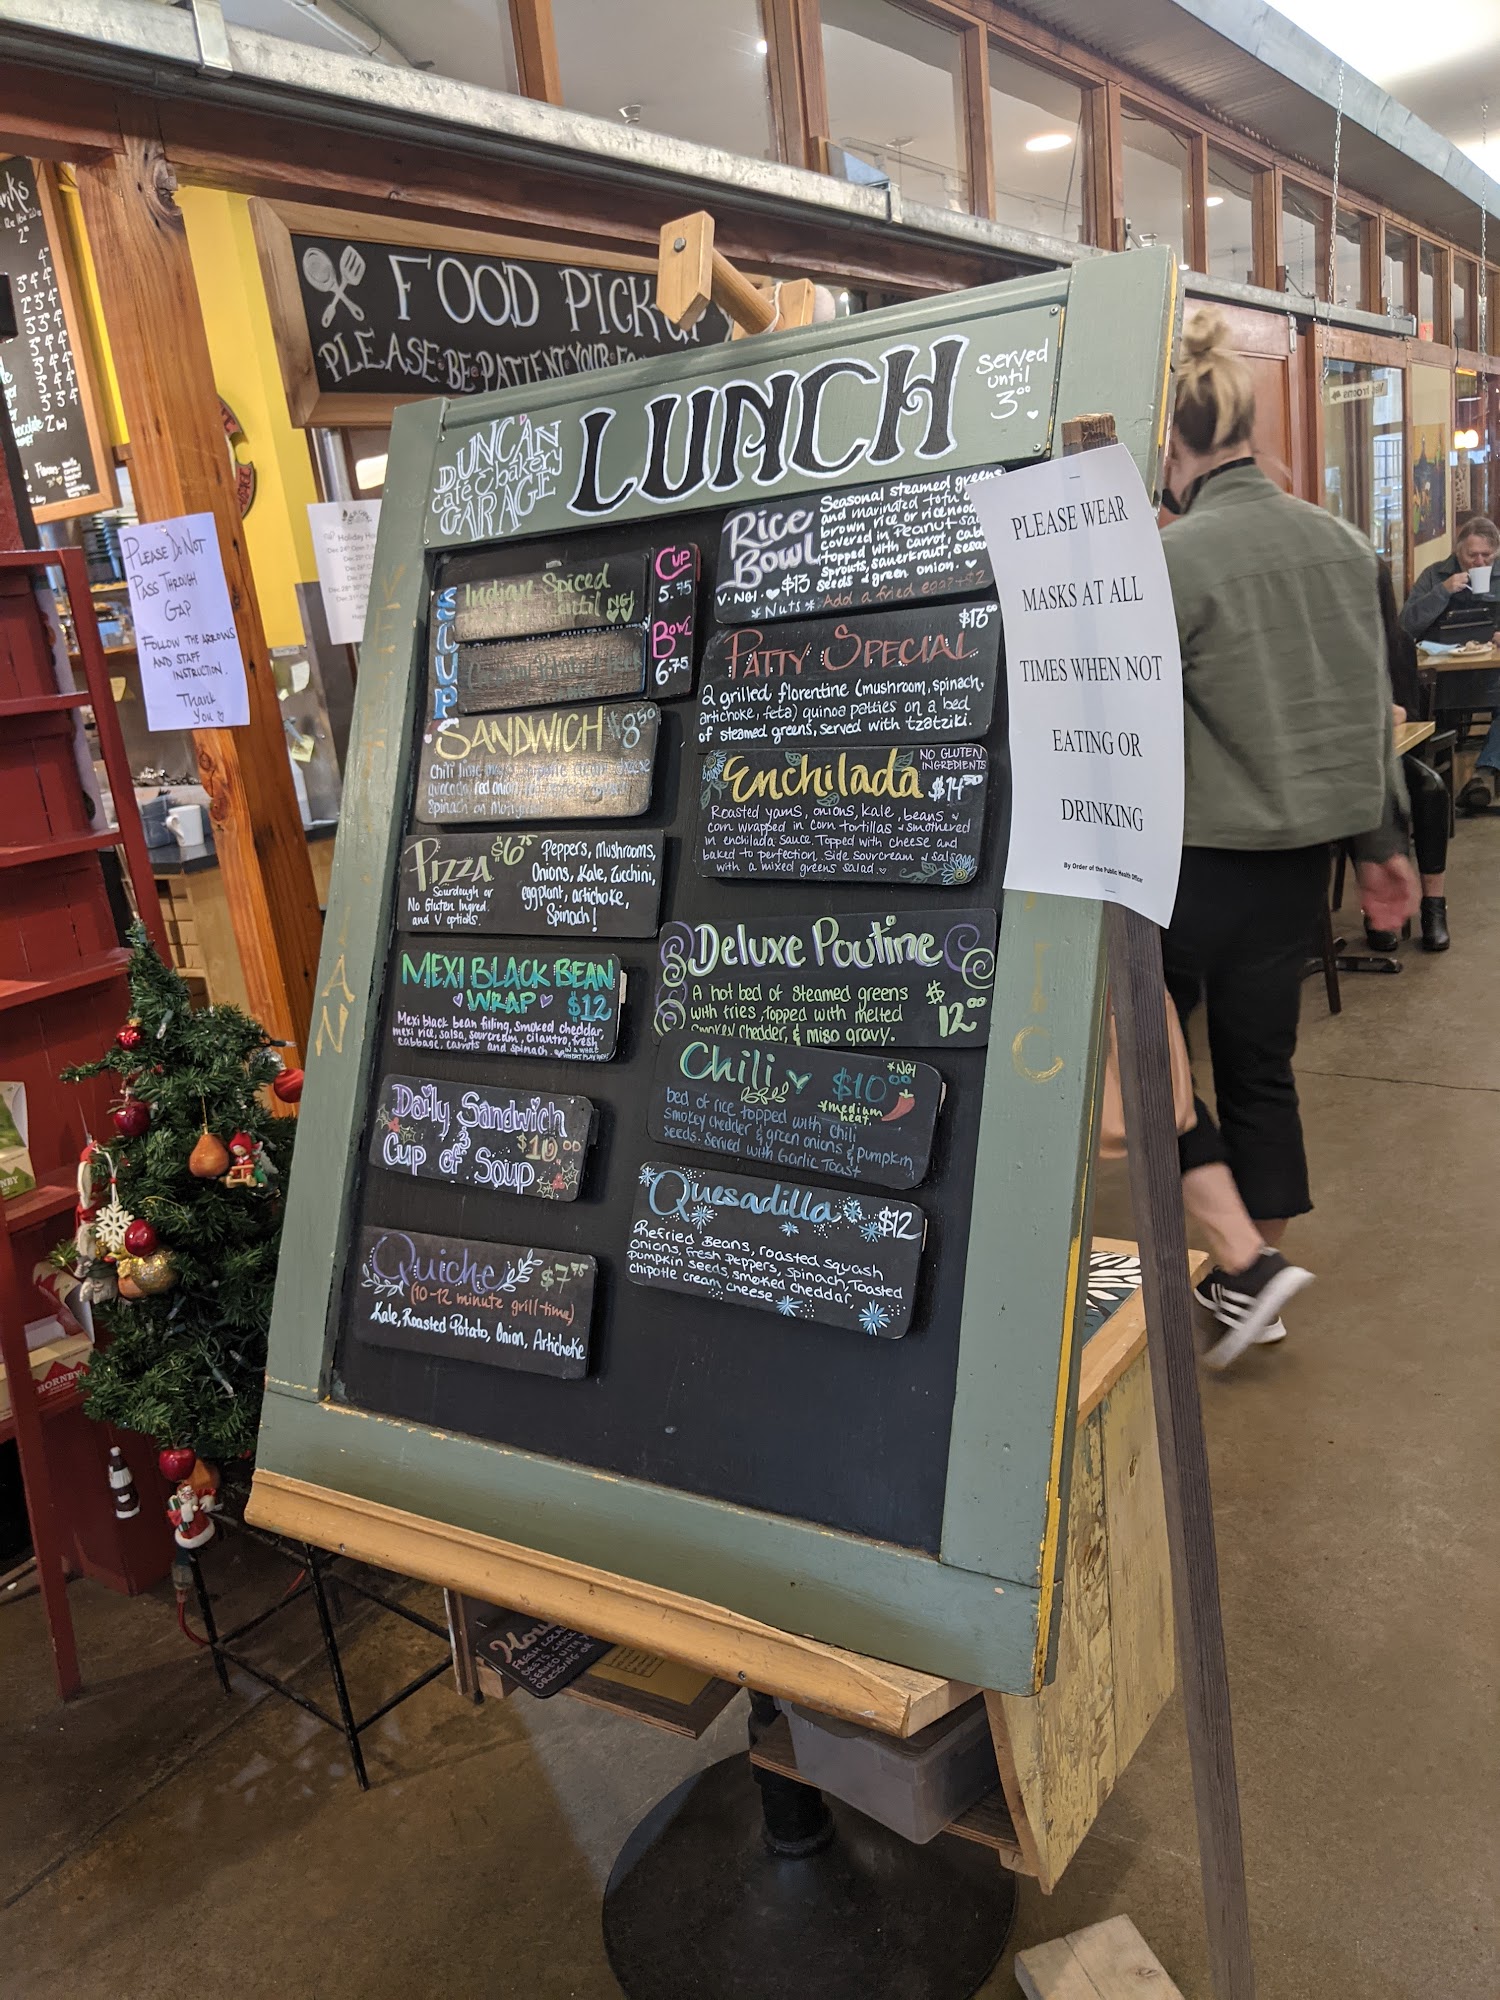 FOOD PICK UP
PLEASE BE PATIENT YOUR
PLEASE DO NOT
PASS THROUGH
GAP
FOLLOW THE ARROWS
AND STAFF
INSTRUCTION.
Thank
You
DUNCAN
café & bakery
GARAGE
LUNCH
Served
until
3⁰⁰
VEGETARIAN
SOUP
Indian Spiced
Lentil NGI
CUP
5.75
BOWL
6.75
SANDWICH $8⁵⁰
Spinach on
PIZZA $6⁷⁵
Sourdough or
No Gluten Ingred.
and V options.
Peppers, Mushrooms,
Onions, Kale, Zucchini,
eggplant, artichoke,
Spinach!
MEXI BLACK BEAN
WRAP $12
Mexi black bean filling, smoked cheddar,
mexi rice, salsa, sourcream, cilantro, fresh
cabbage, carrots and spinach.
Daily Sandwich
& Cup of Soup $10⁰⁰
Quiche $7⁷⁵
(10-12 minute grill-time)
Kale, Roasted Potato, Onion, Artichoke
Rice
Bowl
V·NGI·$13
*Nuts*
Seasonal steamed greens
and marinated tofu
brown rice or rice
covered in Peanut
topped with carrot,
sprouts, sauerkraut,
seeds & green onion.
Add a fried egg +$2
PATTY SPECIAL
2 grilled florentine (mushroom, spinach,
artichoke, feta) quinoa patties on a bed
of steamed greens, served with tzatziki.
Enchilada $14⁵⁰
NO GLUTEN
INGREDIENTS
Roasted yams, onions, kale, beans &
corn wrapped in corn tortillas & smothered
in enchilada sauce. Topped with cheese and
baked to perfection. Side sourcream & salsa
with a mixed greens salad.
Deluxe Poutine
A hot bed of steamed greens
with fries, topped with melted
smokey chedder, & miso gravy.
$12⁰⁰
Chili $10⁰⁰ *NGI
*medium
heat.
bed of rice topped with chili
smokey chedder & green onions & pumpkin
seeds. Served with Garlic Toast
Quesadilla $12
Refried Beans, roasted squash
onions, fresh peppers, spinach, Toasted
pumpkin seeds, smoked cheddar,
chipotle cream cheese
PLEASE WEAR
MASKS AT ALL
TIMES WHEN NOT
EATING OR
DRINKING
By Order of the Public Health Officer
HORNBY